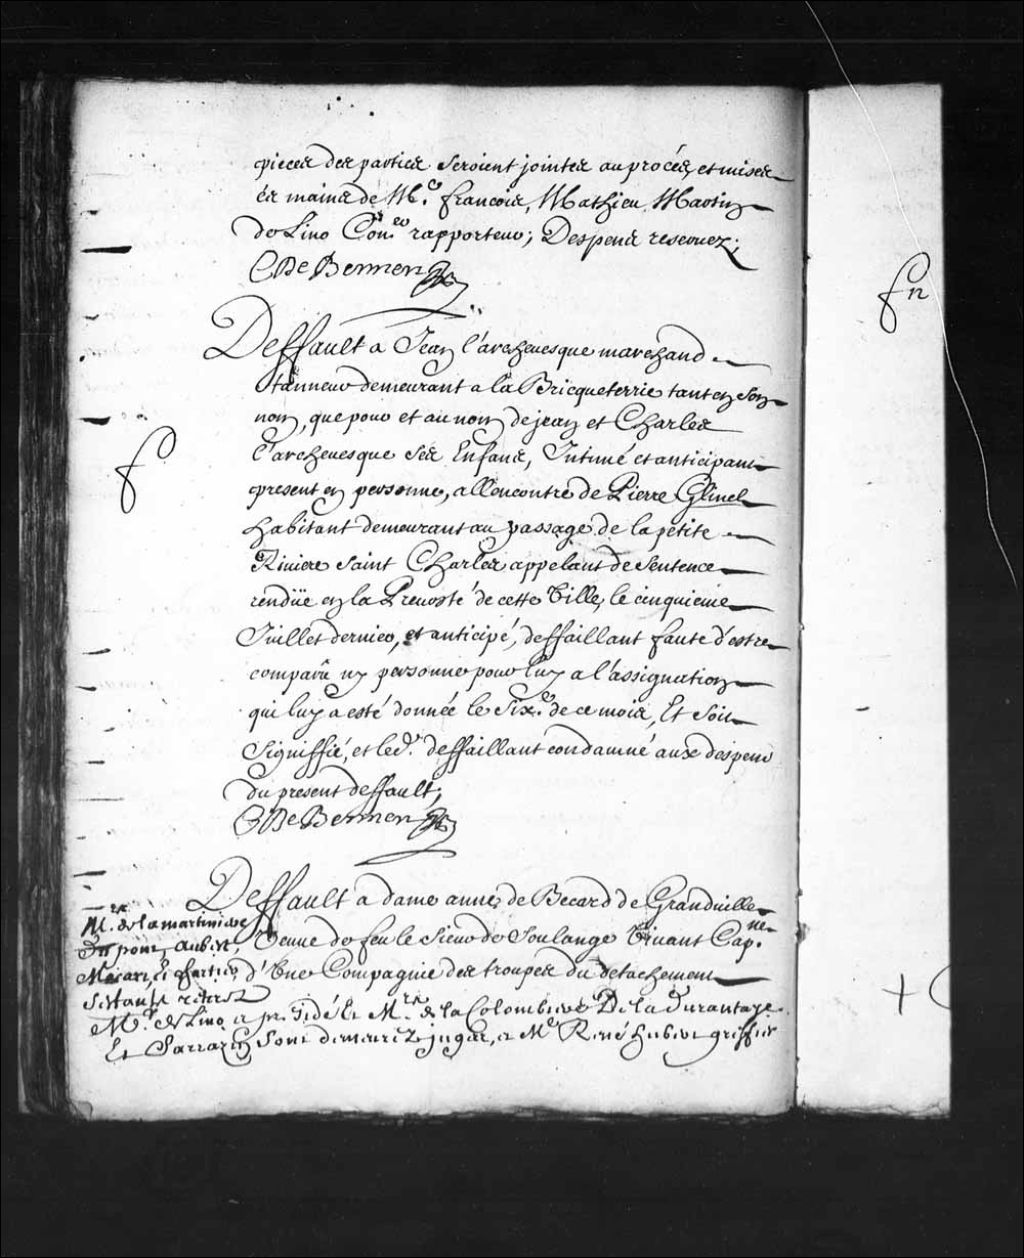 pieces des parties seroient jointes au procés, et mises
és mains de Me. francois, Mathieu, Martin
de Lino Conser. rapporteur; Despens reservez;
C De Bermen
Deffault a Jean l'archevesque marchand
tanneur demeurant a la Bricqueterrie tant en son
nom, que pour et au nom de jean et Charles
l'archevesque ses Enfans, Intimé et anticipant
present en personne, allencontre de Pierre Glinel
habitant demeurant au passage de la petite
Riviere Saint Charles appelant de Sentence
rendüe en la Prevosté de cette Ville, le cinquieme
Juillet dernier, et anticipé, deffaillant faute d'estre
comparû ny personne pour luy a l'assignation
qui luy a esté donnée le Sixe. de ce mois, Et Soit
Signiffié, et led. deffaillant condamné aux despens
du present deffault;
C De Bermen
Deffault a dame anne de Becard de Grandville
Veuve de feu le Sieur de Soulange Vivant Capne.
d'Une Compagnie des trouppes du detachement
Mrs. de la martiniere
Du pont, Aubert,
Macart, &
S'estant retirez
Mr. de Lino a presidé Et Mrs. de la Colombiere De la Durantaye
Et Sarrazin Sont demeurez juges, et Me René hubert greffier
fn